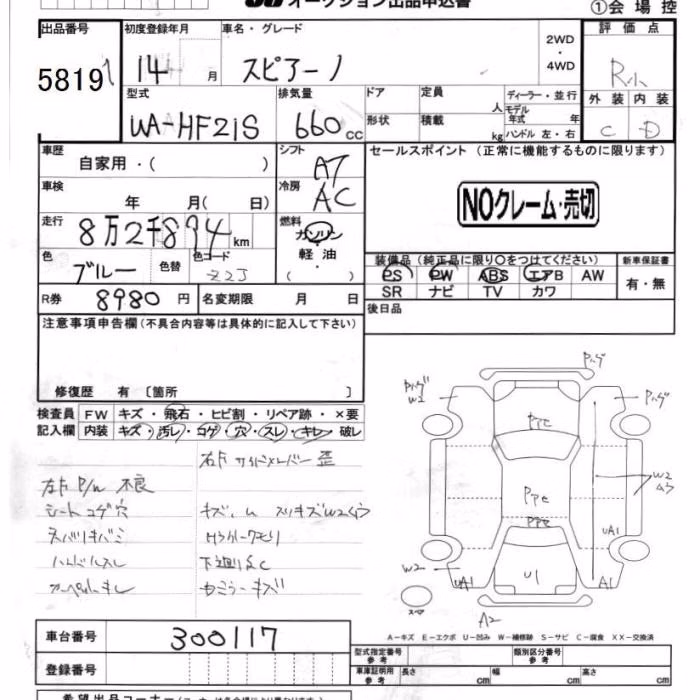 オークション出品申込書
①会場控
出品番号 初度登録年月 車名・グレード 2WD・4WD 評価点
5819 14 月 スピアーノ R小
型式 排気量 ドア 定員 人 ディーラー・並行 外装 内装
モデル年式 年
UA-HF21S 660cc 形状 積載 kg ハンドル 左・右 C D
車歴 シフト セールスポイント (正常に機能するものに限ります)
自家用・( ) AT
車検 冷房
年 月( 日) AC NOクレーム・売切
走行 燃料
8万2千894km ガソリン・軽油・( )
色 色替 色コード 装備品 (純正品に限り○をつけてください) 新車保証書
ブルー PS PW ABS エアB AW 有・無
SR ナビ TV カワ
R券 8980円 名変期限 月 日 後日品
注意事項申告欄 (不具合内容等は具体的に記入して下さい)
修復歴 有 〔箇所 〕
検査員 FW キズ・飛石・ヒビ割・リペア跡・×要
記入欄 内装 キズ・汚レ・コゲ・穴・スレ・キレ・破レ
右F サイドメンバー 歪
左F P/W 不良
シートコゲ穴
ネバリキバミ
ハンドルスレ
下廻りSC
カーペットキレ
Pハゲ
Pハゲ
W2
Pハゲ
PPC
W2
PPC
PPC
UA1
W2
UA1
U1
A1
スペア
A2
A-キズ E-エクボ U-凹み W-補修跡 S-サビ C-腐食 XX-交換済
車台番号 300117
型式指定番号 参考 類別区分番号 参考
登録番号 車庫証明用 参考 長さ cm 幅 cm 高さ cm
希望出品コーナー